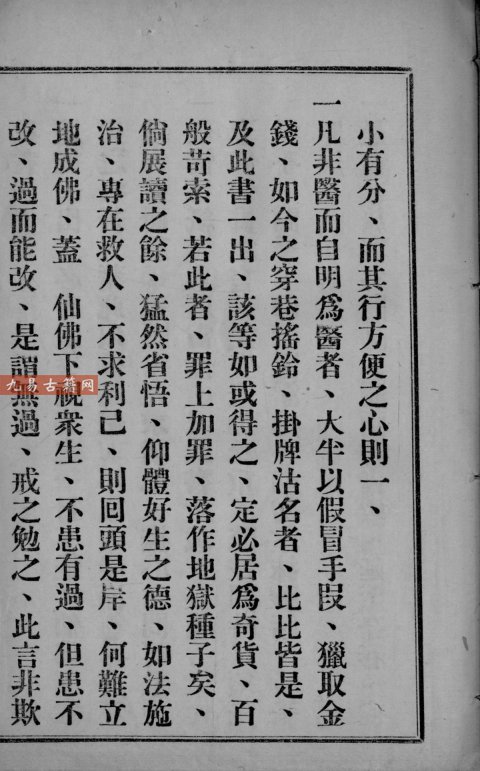 小有分、而其行方便之心則一、
一凡非醫而自明爲醫者、大半以假冒手段、獵取金
錢、如今之穿巷搖鈴、掛牌沽名者、比比皆是、
及此書一出、該等如或得之、定必居爲奇貨、百
般苛索、若此者、罪上加罪、落作地獄種子矣、
倘展讀之餘、猛然省悟、仰體好生之德、如法施
治、專在救人、不求利己、則回頭是岸、何難立
地成佛、蓋 仙佛下視衆生、不患有過、但患不
改、過而能改、是謂無過、戒之勉之、此言非欺
九易古籍网